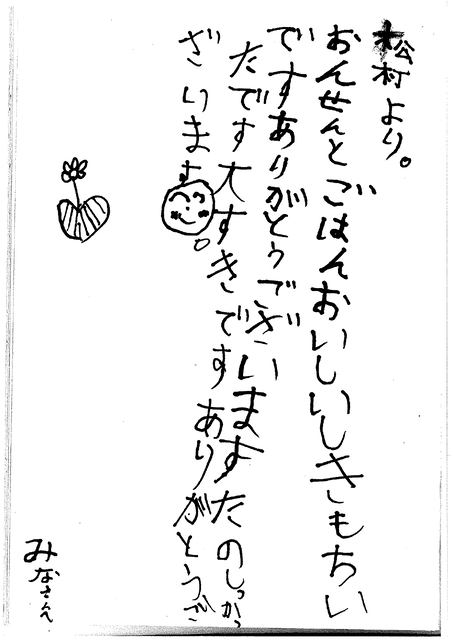 松村より。
おんせんとごはんおいしいしきもちい
ですありがとうございますたのしかっ
たです大すきですありがとうご
ざいます。
みなさん